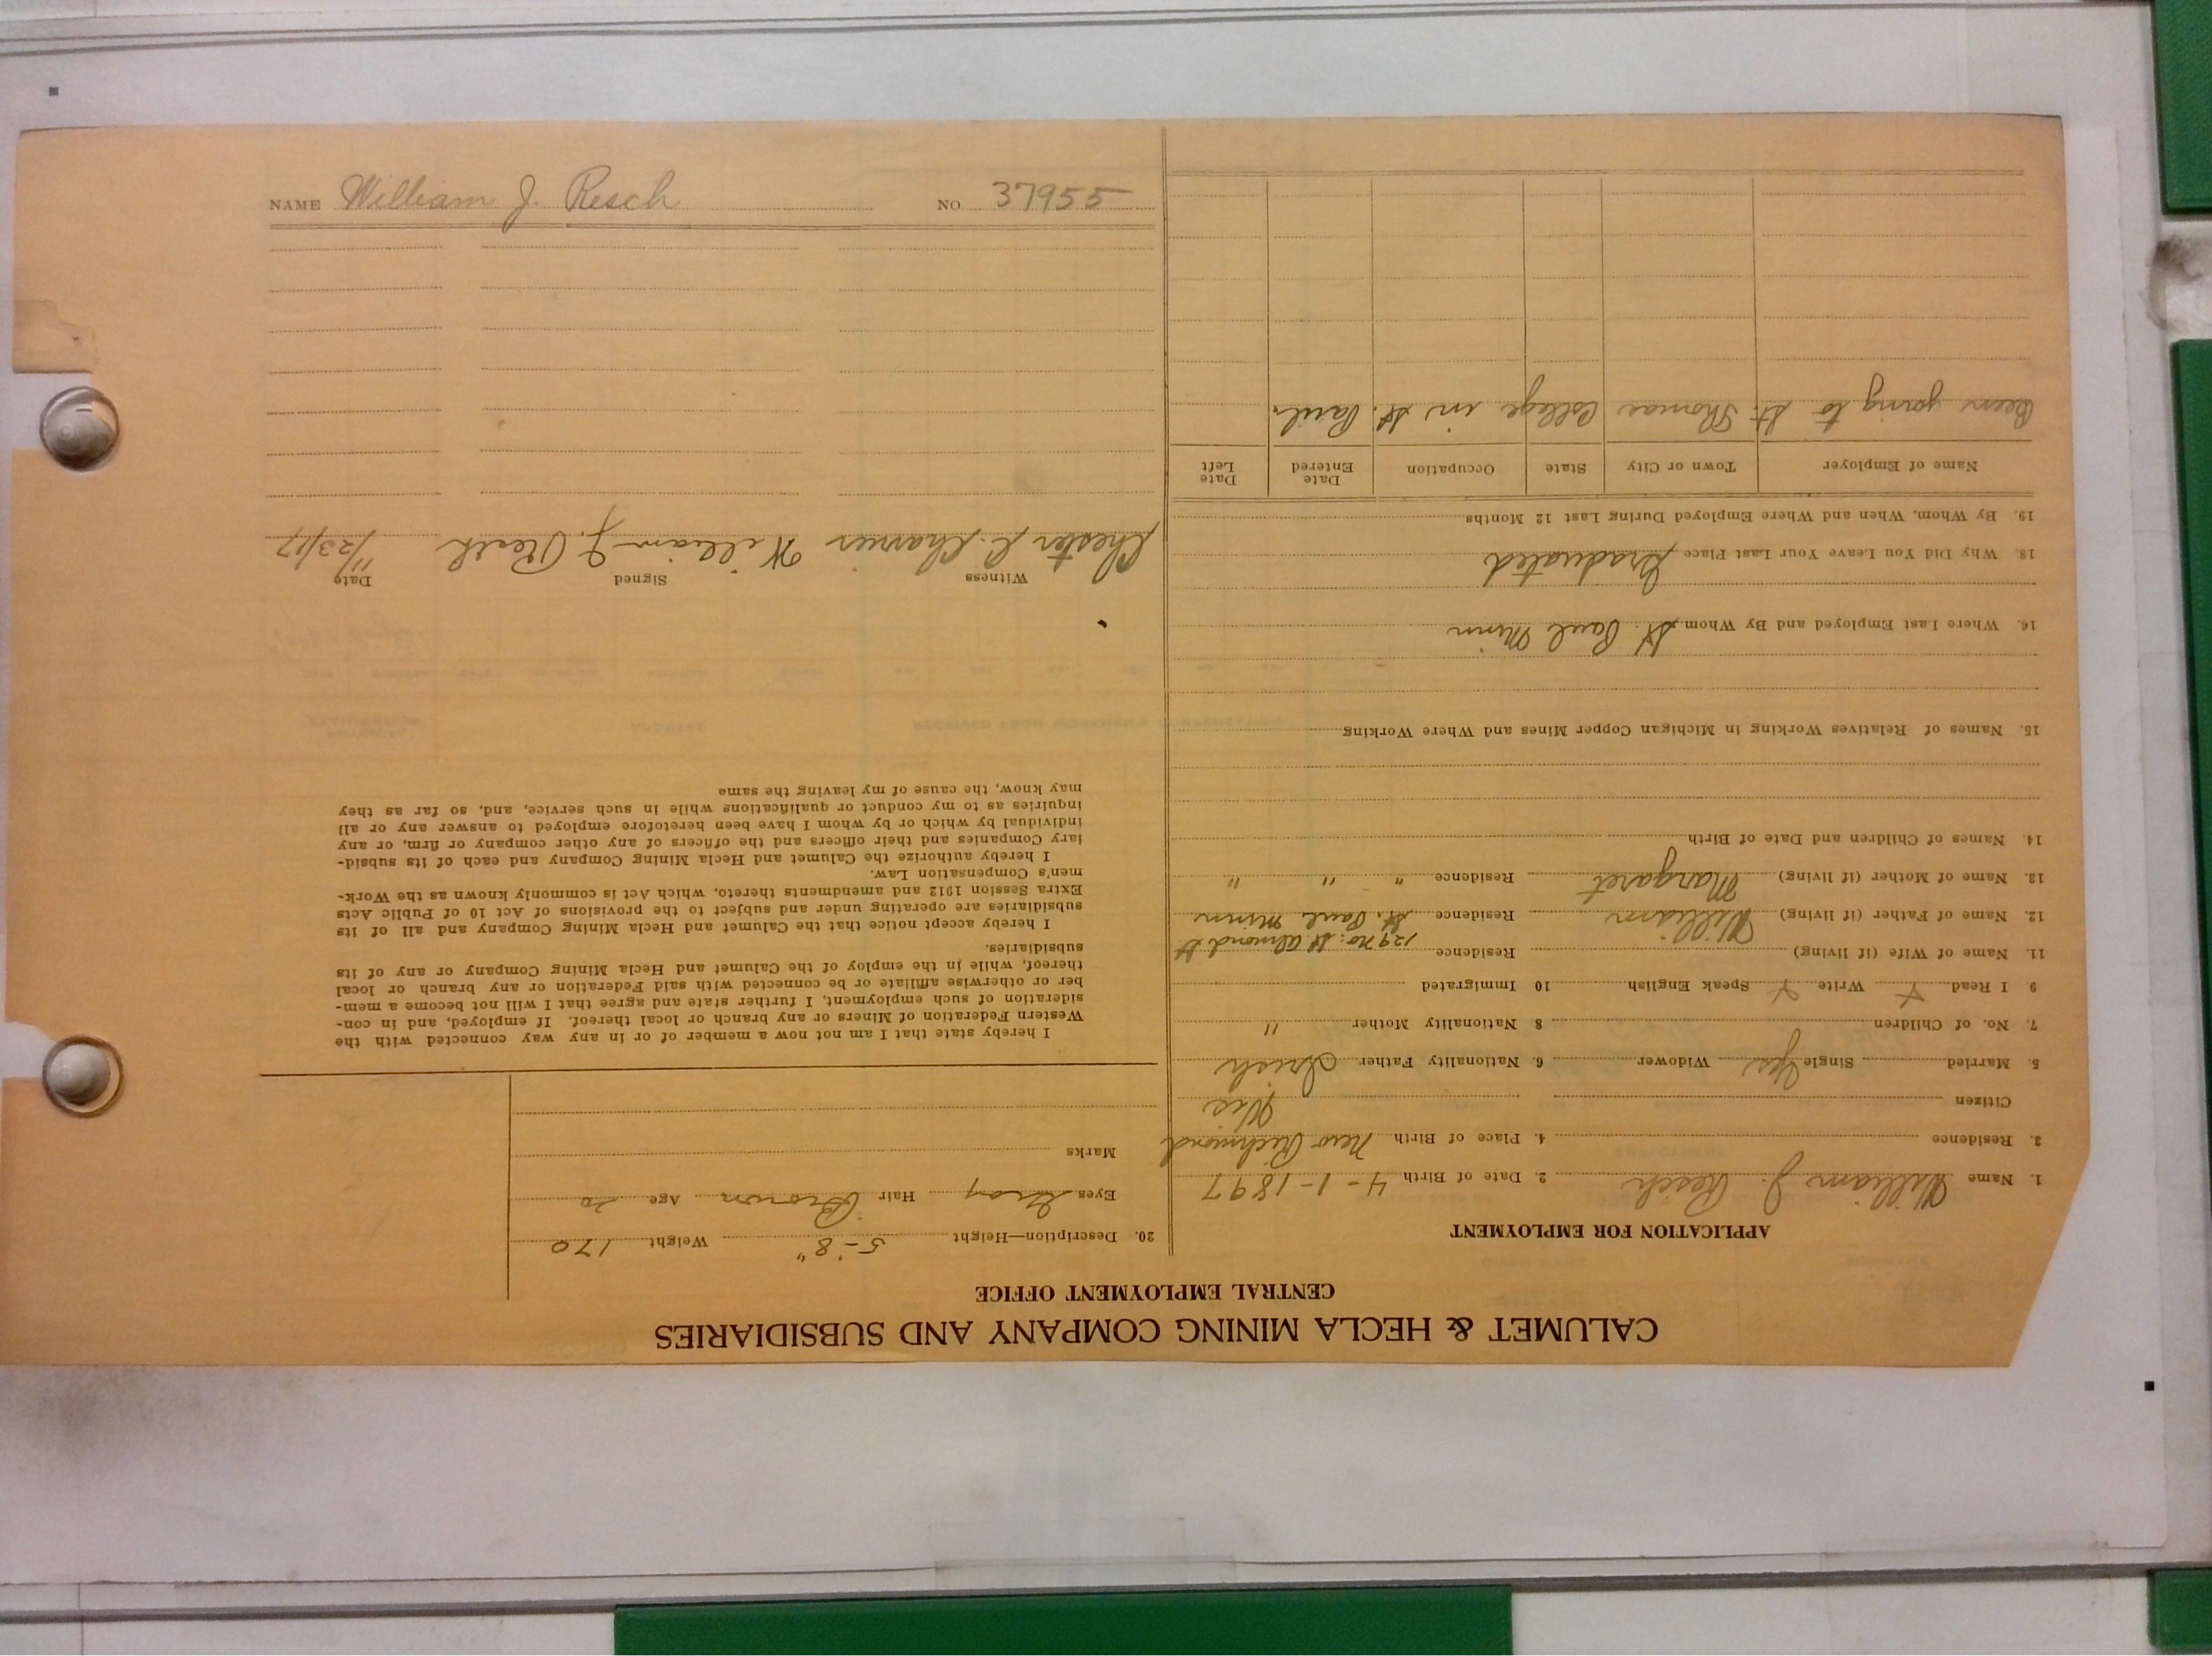 CALUMET & HECLA MINING COMPANY AND SUBSIDIARIES
CENTRAL EMPLOYMENT OFFICE
APPLICATION FOR EMPLOYMENT
1. Name William J. Resch 2. Date of Birth 4-1-1897
3. Residence 4. Place of Birth New Richmond
Citizen Wis
5. Married Single Yes Widower 6. Nationality Father Irish
7. No. of Children 8 Nationality Mother "
9 I Read x Write x Speak English 10 Immigrated
11. Name of Wife (if living) Residence 129 No. St. Almond St
12. Name of Father (if living) William Residence St. Paul Minn
13. Name of Mother (if living) Margaret Residence " " "
14. Names of Children and Date of Birth
15. Names of Relatives Working in Michigan Copper Mines and Where Working
16. Where Last Employed and By Whom St. Paul Minn
18. Why Did You Leave Your Last Place Graduated
19. By Whom, When and Where Employed During Last 12 Months
Name of Employer Town or City State Occupation Date Entered Date Left
Been going to St. Thomas College in St. Paul.
20. Description—Height 5-8" Weight 170
Eyes Gray Hair Brown Age 20
Marks
I hereby state that I am not now a member of or in any way connected with the
Western Federation of Miners or any branch or local thereof. If employed, and in con-
sideration of such employment, I further state and agree that I will not become a mem-
ber or otherwise affiliate or be connected with said Federation or any branch or local
thereof, while in the employ of the Calumet and Hecla Mining Company or any of its
subsidiaries.
I hereby accept notice that the Calumet and Hecla Mining Company and all of its
subsidiaries are operating under and subject to the provisions of Act 10 of Public Acts
Extra Session 1912 and amendments thereto, which Act is commonly known as the Work-
men's Compensation Law.
I hereby authorize the Calumet and Hecla Mining Company and each of its subsid-
iary Companies and their officers and the officers of any other company or firm, or any
individual by which or by whom I have been heretofore employed to answer any or all
inquiries as to my conduct or qualifications while in such service, and, so far as they
may know, the cause of my leaving the same
Witness Signed Date
Chester C. William J. Resch 11/23/17
NAME William J. Resch NO. 37955